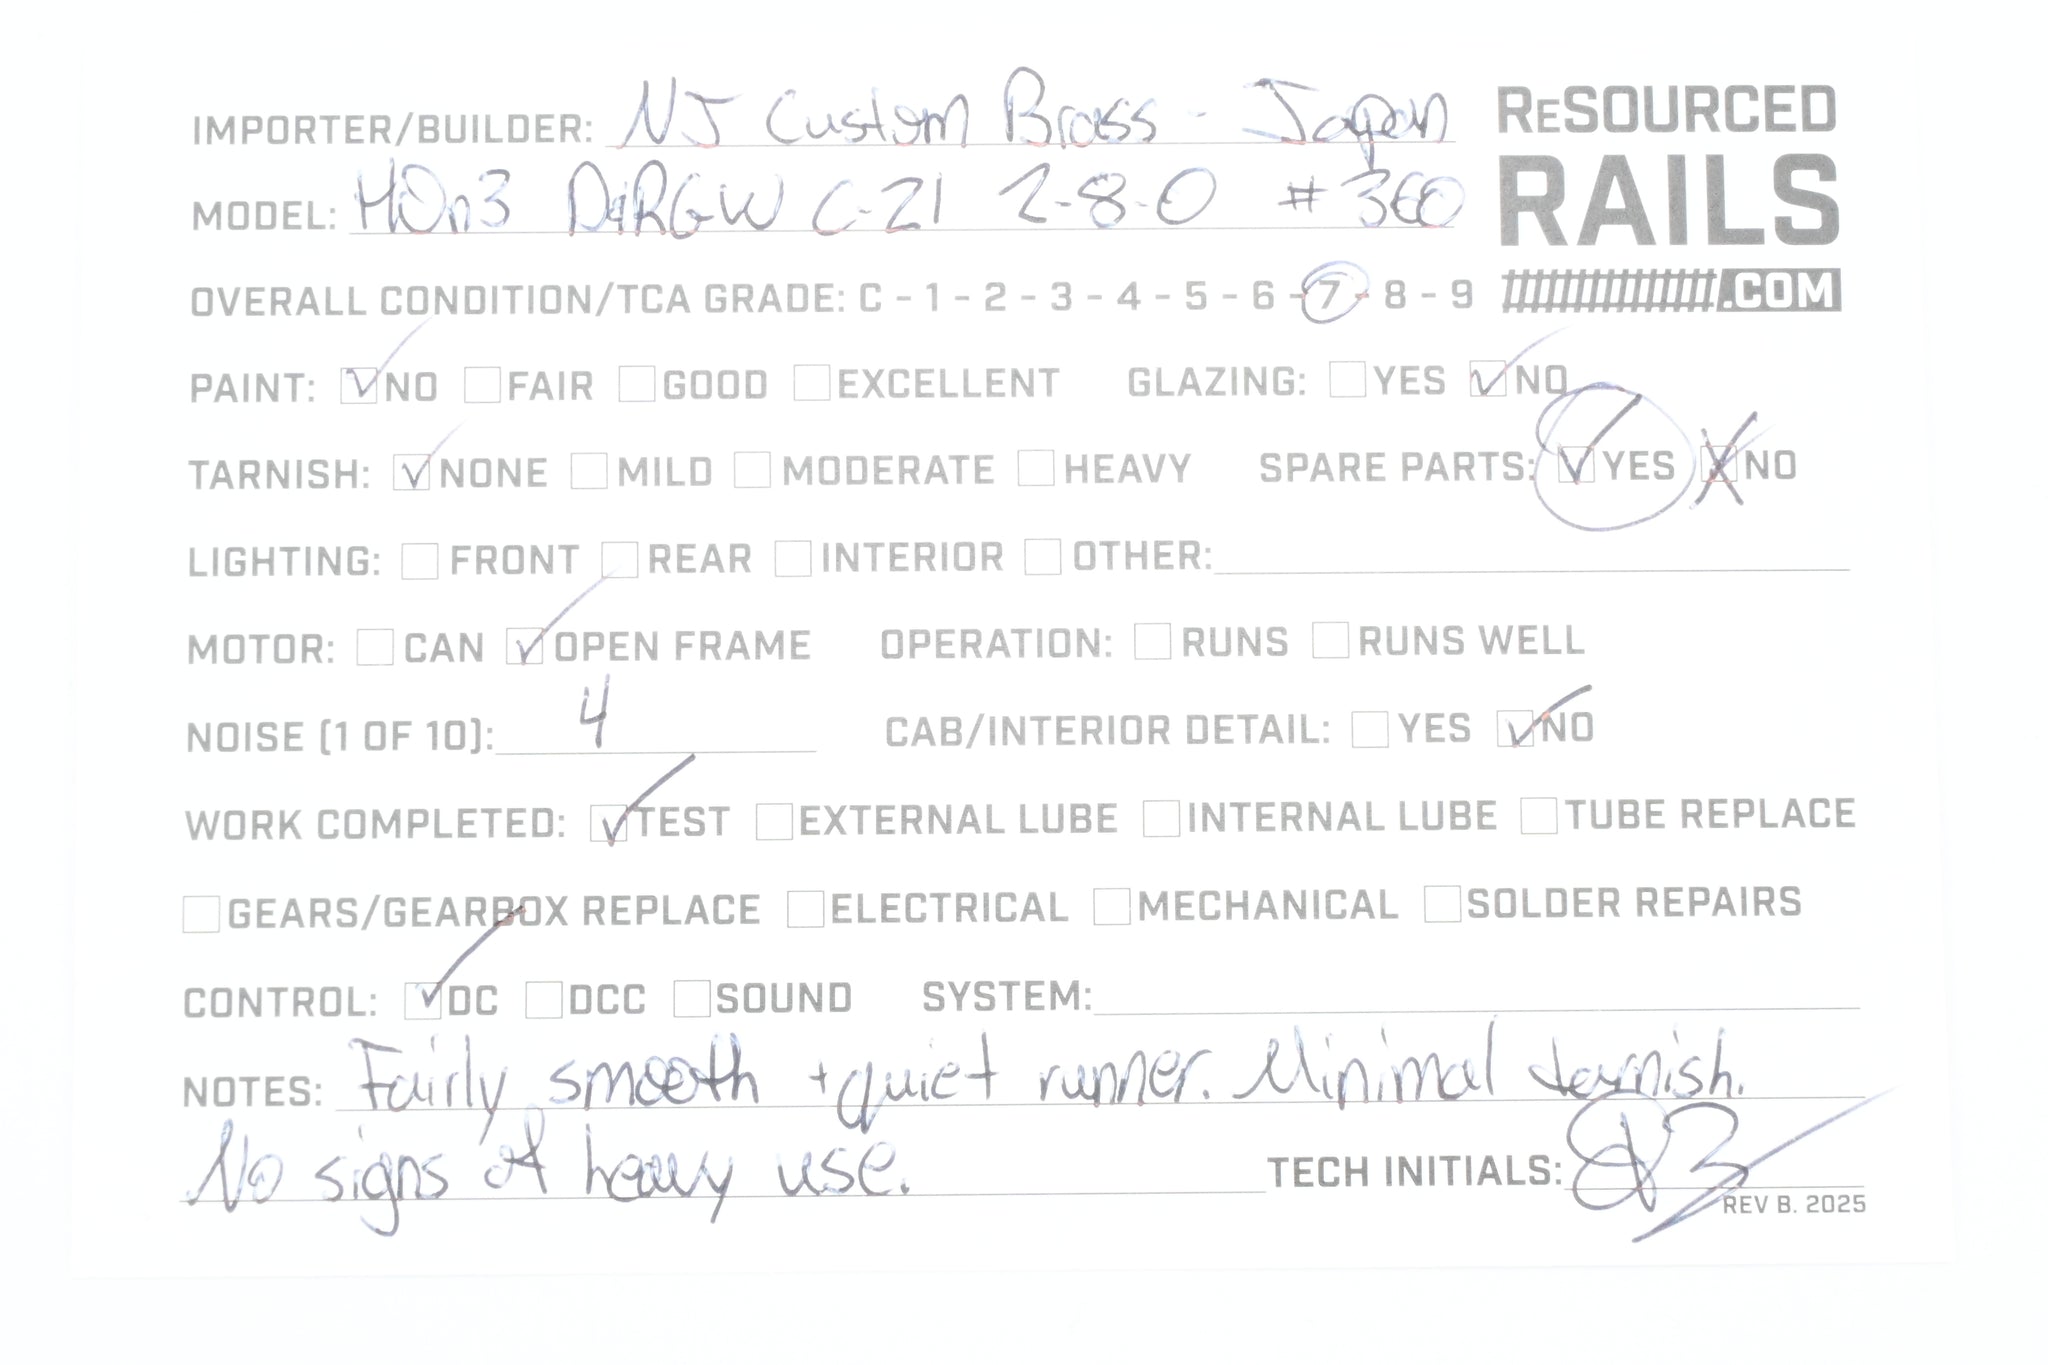 IMPORTER/BUILDER: NJ Custom Brass - Japan
ReSOURCED
RAILS
.COM
MODEL: HOn3 D&RGW C-21 2-8-0 #360
OVERALL CONDITION/TCA GRADE: C - 1 - 2 - 3 - 4 - 5 - 6 - 7 - 8 - 9
PAINT: ☑ NO ☐ FAIR ☐ GOOD ☐ EXCELLENT GLAZING: ☐ YES ☑ NO
TARNISH: ☑ NONE ☐ MILD ☐ MODERATE ☐ HEAVY SPARE PARTS: ☑ YES ☒ NO
LIGHTING: ☐ FRONT ☐ REAR ☐ INTERIOR ☐ OTHER:
MOTOR: ☐ CAN ☑ OPEN FRAME OPERATION: ☐ RUNS ☐ RUNS WELL
NOISE (1 OF 10): 4 CAB/INTERIOR DETAIL: ☐ YES ☑ NO
WORK COMPLETED: ☑ TEST ☐ EXTERNAL LUBE ☐ INTERNAL LUBE ☐ TUBE REPLACE
☐ GEARS/GEARBOX REPLACE ☐ ELECTRICAL ☐ MECHANICAL ☐ SOLDER REPAIRS
CONTROL: ☑ DC ☐ DCC ☐ SOUND SYSTEM:
NOTES: Fairly smooth + quiet runner. Minimal tarnish.
No signs of heavy use. TECH INITIALS:
REV B. 2025